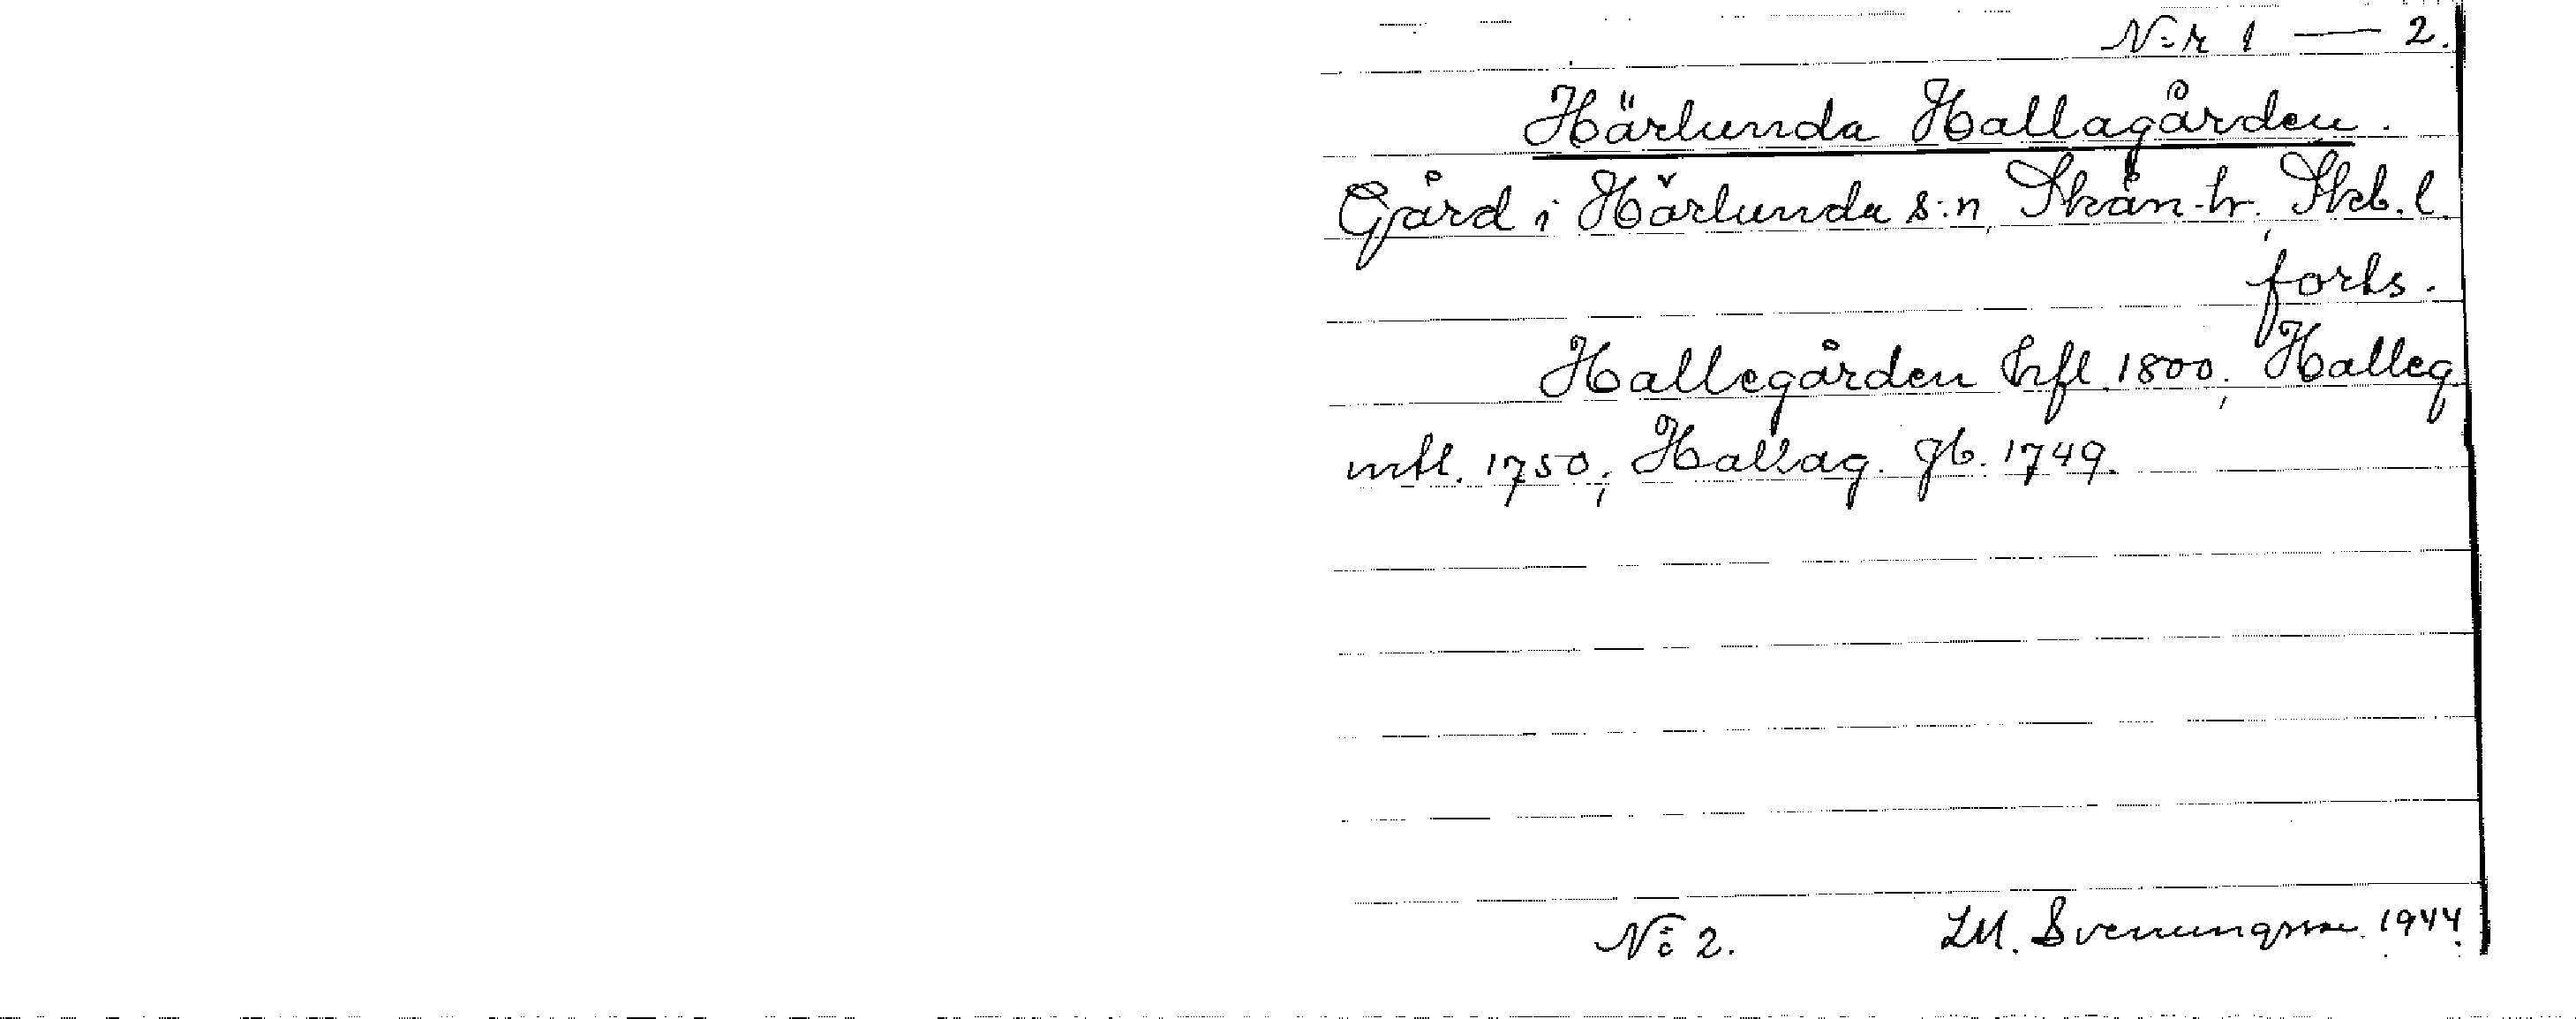 N:r 1 — 2.
Härlunda Hallagården.
Gård i Härlunda s:n, Skån. hr, Skb. l.
forts.
Hallegården hfl. 1800; Halleg.
mtl. 1750; Hallag. gb. 1749.
N:o 2. LM. Svenungsson 1944.